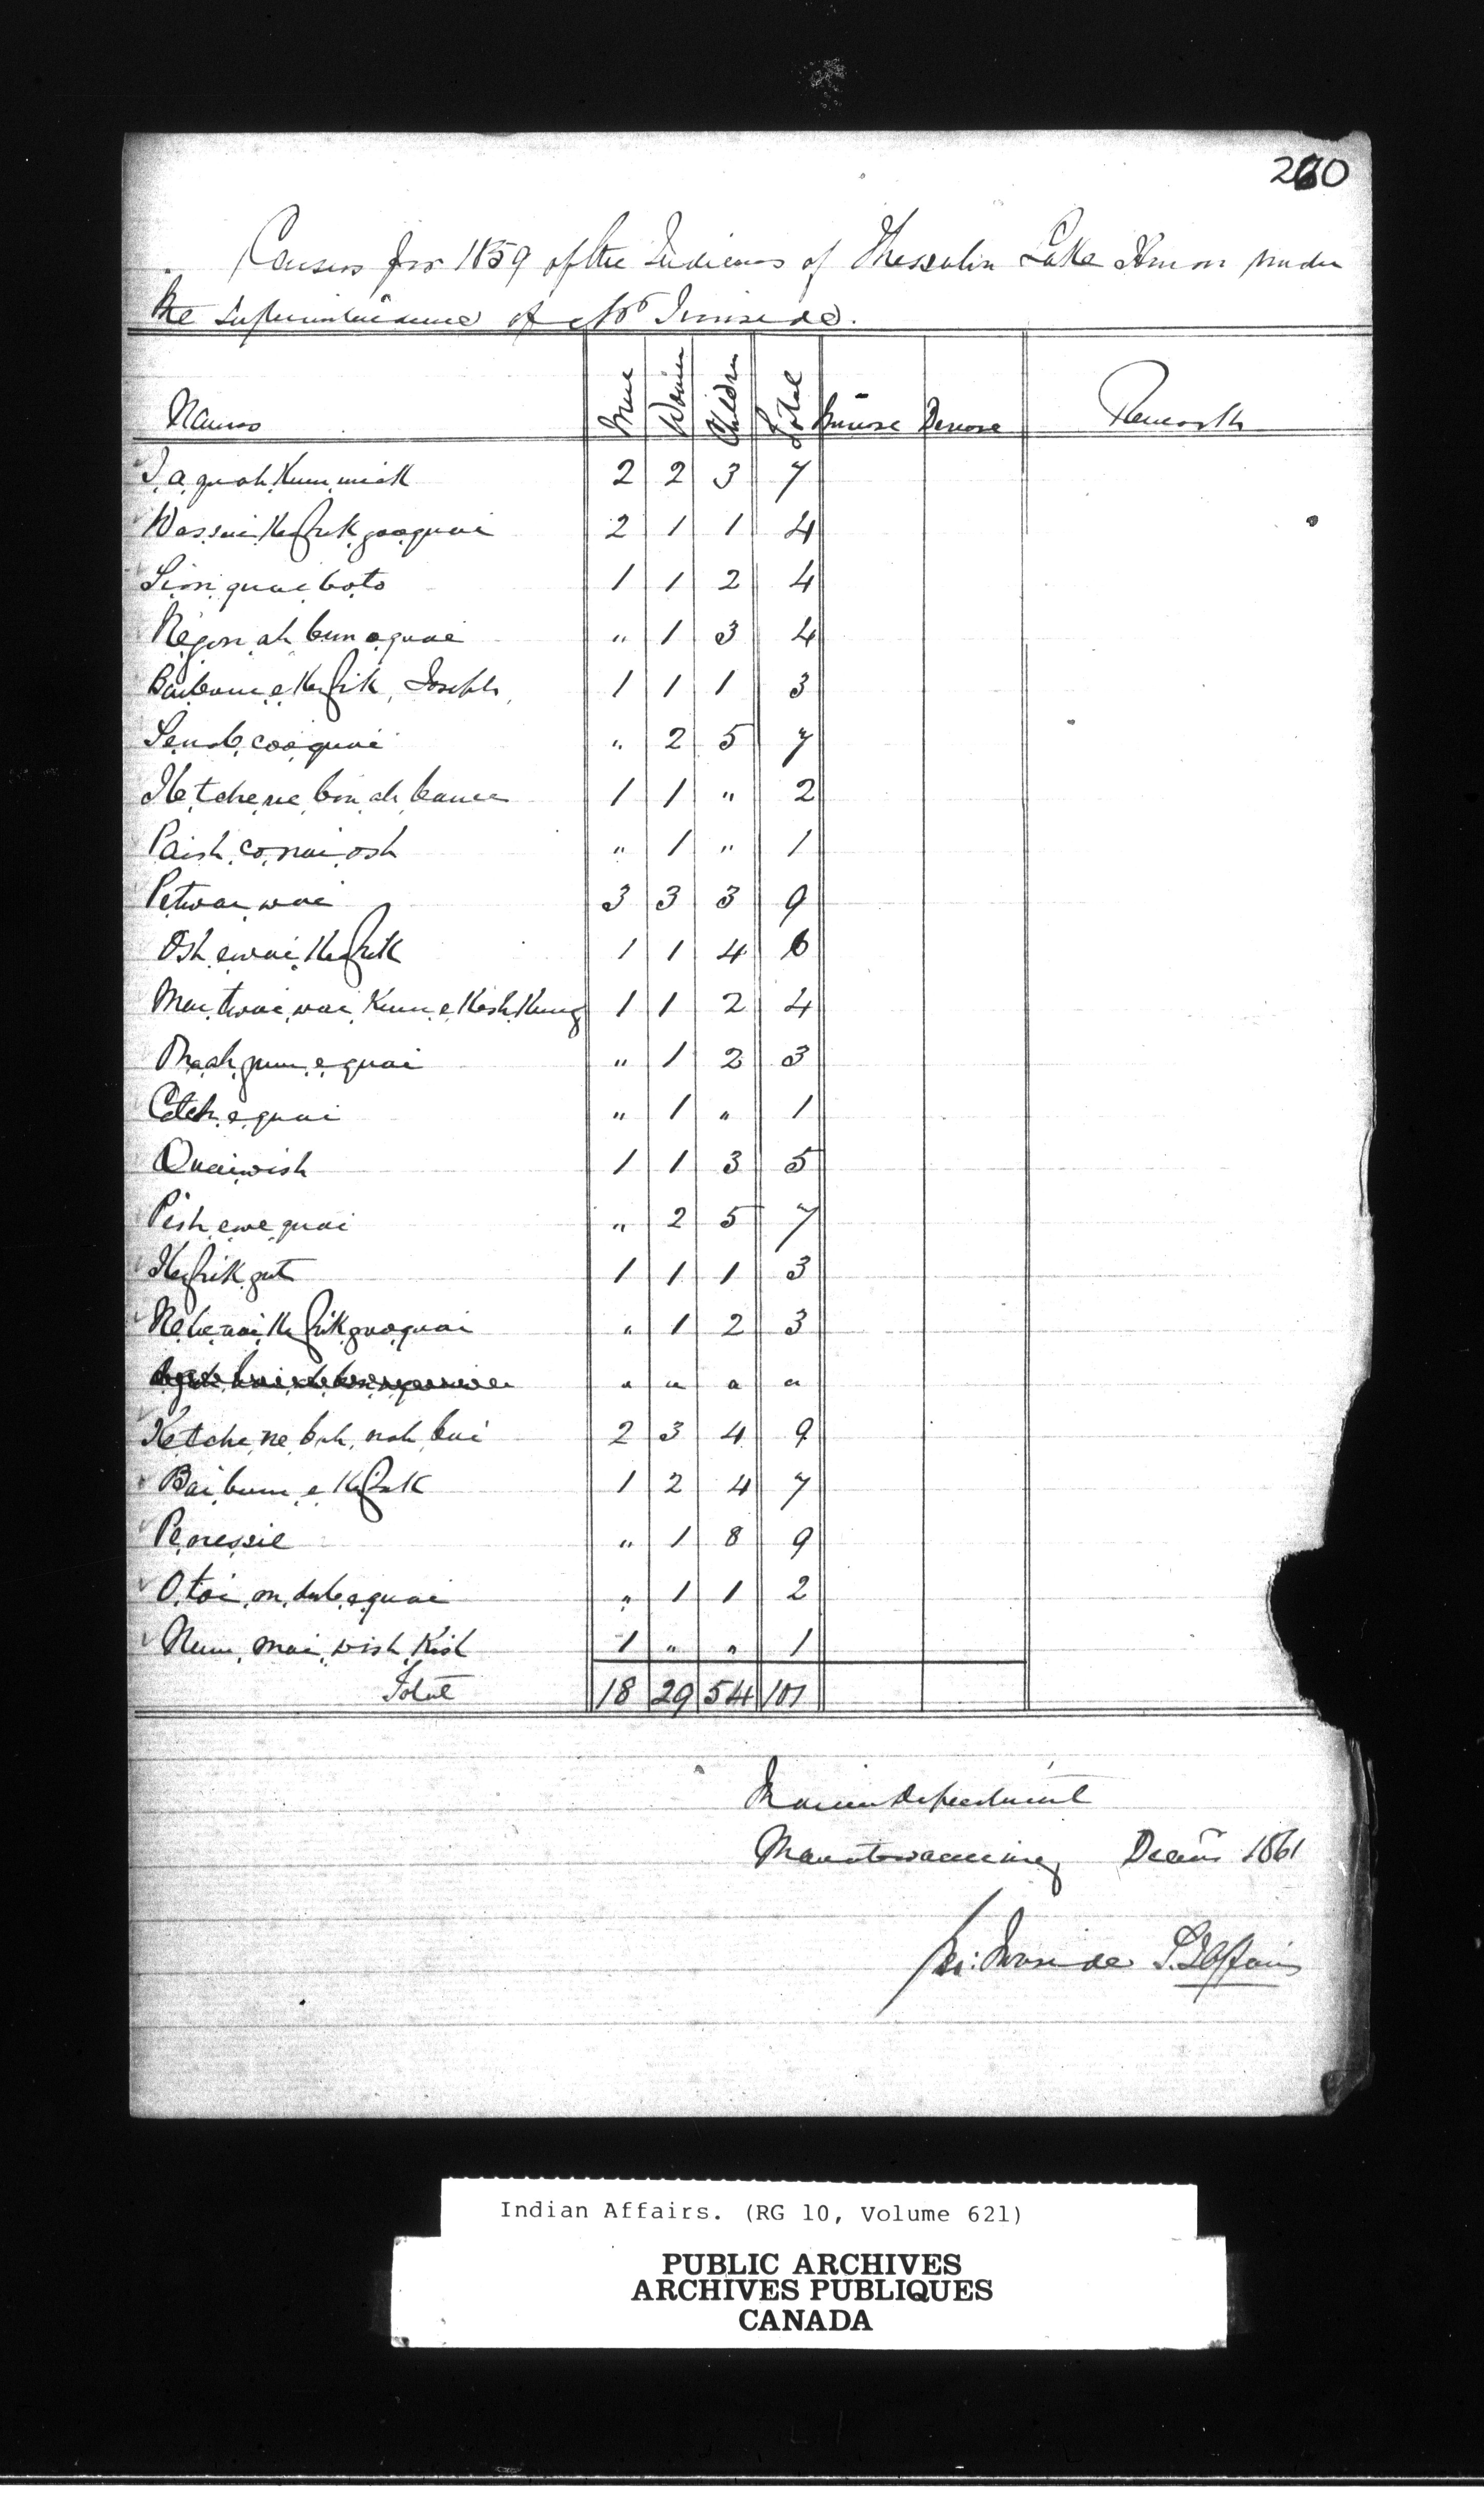 260
Census for 1859 of the Indians of Thessalin Lake Huron under
the Superintendence of Mr Ironside.
Names Men Women Children Total Increase Decrease Remarks
I,a,quah,kum,mick 2 2 3 7
Wassai,Ke,Jick,goo,quai 2 1 1 4
Sion,quai,bato 1 1 2 4
Negon,ah,bun,o,quai " 1 3 4
Baibum,e,Ke,Jik, Joseph, 1 1 1 3
" 2 5 7
Ketche,ne,bin,ah,bance 1 1 " 2
Paish,co,nai,osh " 1 " 1
Petwai,wai 3 3 3 9
Osh,ewai,Ke,Jick 1 1 4 6
Mai,twai,wai,Kum,e,Kosh,Kung 1 1 2 4
" 1 2 3
Cotch,e,quai " 1 " 1
Quaiwish 1 1 3 5
Pish,ewe,quai " 2 5 7
Ke,Jik,gut 1 1 1 3
Ne,be,nai,Ke,Jik,goo,quai " 1 2 3
" " " "
Ketche,ne,bah,nah,bai 2 3 4 9
Bai,bum,e,Ke,Jick 1 2 4 7
Penessie " 1 8 9
O,tai,on,dub,e,quai " 1 1 2
Num,mai,wish,Kish 1 " " 1
Total 18 29 54 101
Indian Department
Manitowaning Decr 1861
Ironside S.I.Affairs
Indian Affairs. (RG 10, Volume 621)
PUBLIC ARCHIVES
ARCHIVES PUBLIQUES
CANADA